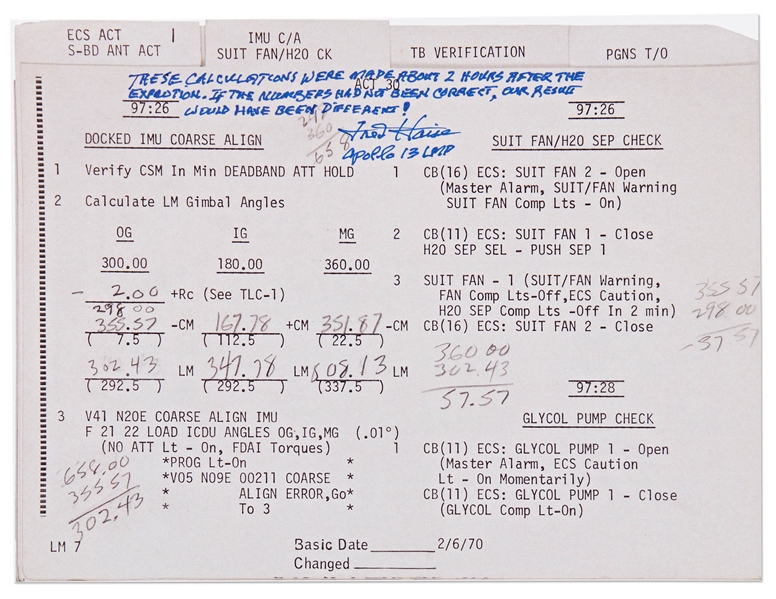 ECS ACT
S-BD ANT ACT
IMU C/A
SUIT FAN/H2O CK
TB VERIFICATION
PGNS T/O
THESE CALCULATIONS WERE MADE ABOUT 2 HOURS AFTER THE
EXPLOTION. IF THE NUMBERS HAD NOT BEEN CORRECT, OUR RESULT
WOULD HAVE BEEN DIFFERENT!
Fred Haise
Apollo 13 LMP
ACT 30
97:26
DOCKED IMU COARSE ALIGN
298
360
658
1 Verify CSM In Min DEADBAND ATT HOLD
2 Calculate LM Gimbal Angles
OG IG MG
300.00 180.00 360.00
- 2.00 +Rc (See TLC-1)
298 00
355.57 -CM 167.78 +CM 351.87 -CM
( 7.5 ) (112.5 ) ( 22.5 )
302.43 LM 347.78 LM 008.13 LM
( 292.5 ) ( 292.5 ) (337.5 )
3 V41 N20E COARSE ALIGN IMU
F 21 22 LOAD ICDU ANGLES OG,IG,MG (.01°)
(NO ATT Lt - On, FDAI Torques)
*PROG Lt-On *
*V05 N09E 00211 COARSE *
* ALIGN ERROR,Go*
* To 3 *
658.00
355 57
302.43
97:26
SUIT FAN/H2O SEP CHECK
1 CB(16) ECS: SUIT FAN 2 - Open
(Master Alarm, SUIT/FAN Warning
SUIT FAN Comp Lts - On)
2 CB(11) ECS: SUIT FAN 1 - Close
H2O SEP SEL - PUSH SEP 1
3 SUIT FAN - 1 (SUIT/FAN Warning,
FAN Comp Lts-Off,ECS Caution,
H2O SEP Comp Lts -Off In 2 min)
CB(16) ECS: SUIT FAN 2 - Close
355 57
298.00
-57.57
360 00
302.43
57.57
97:28
GLYCOL PUMP CHECK
1 CB(11) ECS: GLYCOL PUMP 1 - Open
(Master Alarm, ECS Caution
Lt - On Momentarily)
CB(11) ECS: GLYCOL PUMP 1 - Close
(GLYCOL Comp Lt-On)
LM 7
Basic Date 2/6/70
Changed